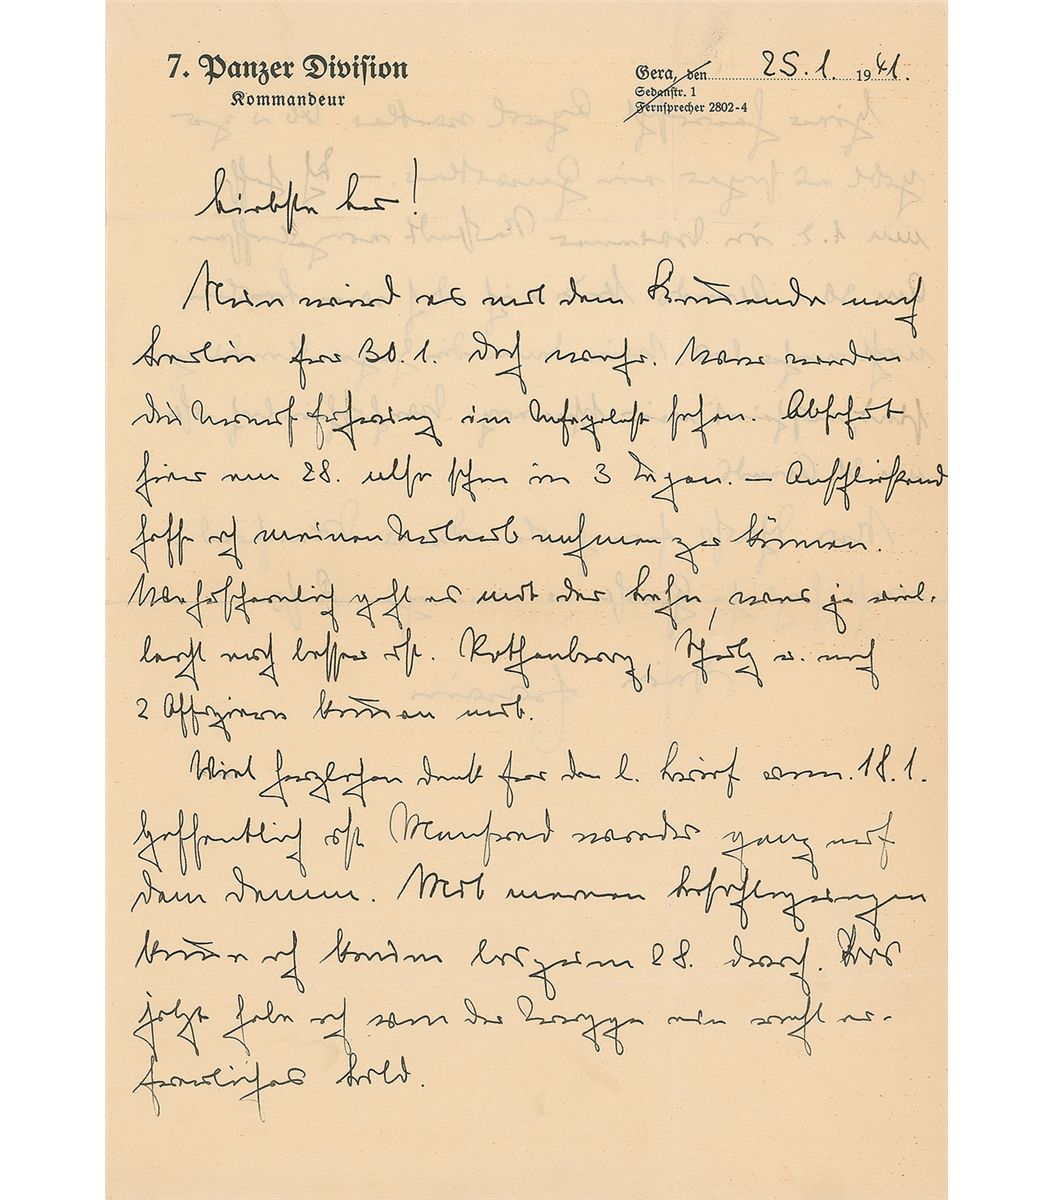 7. Panzer Division
Kommandeur
Gera, den 25. 1. 1941.
Sedanstr. 1
Fernsprecher 2802-4
Liebste Lu!
Nun wird es mit dem Kommando nach
Berlin für 30. 1. doch wahr. Wir werden
die Uraufführung im Ufapalast sehen. Abfahrt
hier am 28. also schon in 3 Tagen. – Anschließend
hoffe ich meinen Urlaub nehmen zu können.
Wahrscheinlich geht es mit der Bahn, was ja viel-
leicht auch besser ist. Rothenburg, Schulz u. noch
2 Offiziere kommen mit.
Viel herzlichen Dank für den l. Brief vom 18. 1.
Hoffentlich ist Manfred wieder ganz auf
dem Damm. Mit meinen
komme ich kaum bis zum 28. durch. Bis
jetzt habe ich von der Truppe ein recht er-
freuliches Bild.